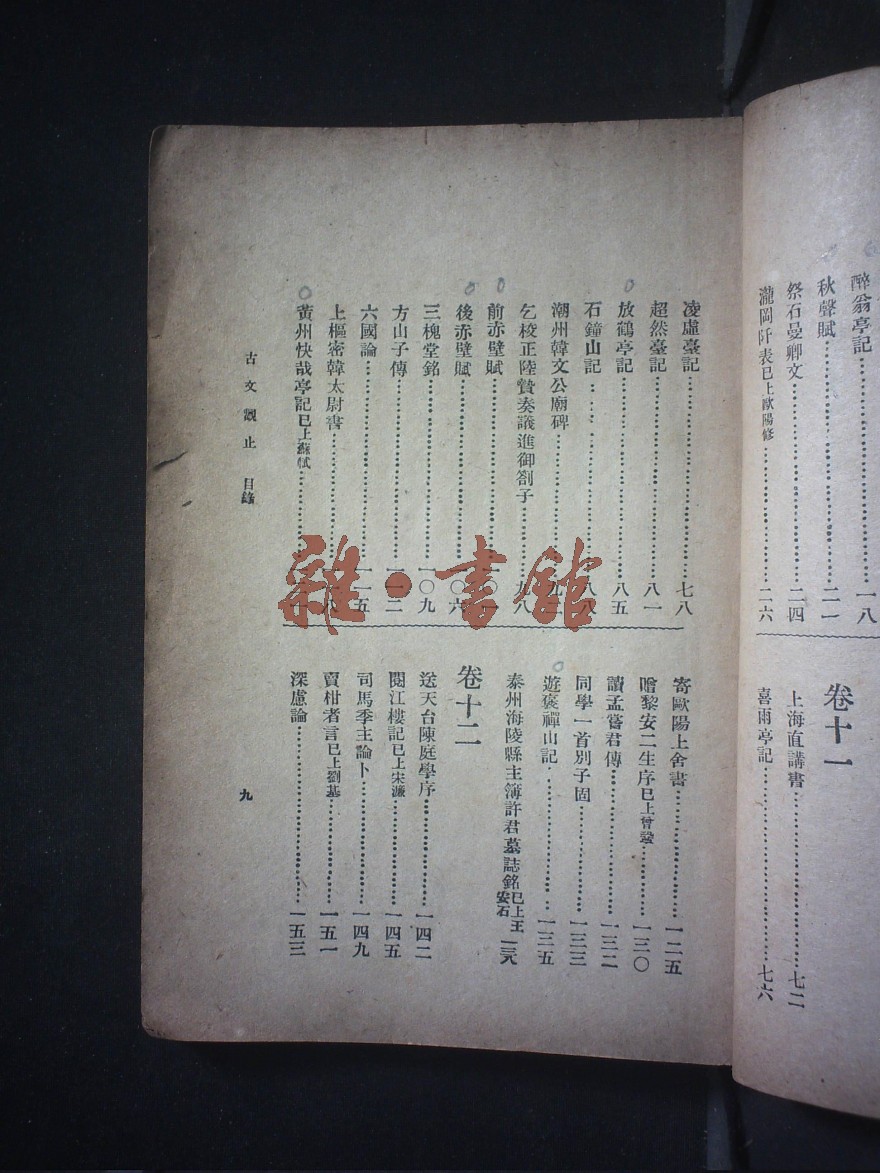 醉翁亭記……一八
秋聲賦……二一
祭石曼卿文……二四
瀧岡阡表已上歐陽修……二六
卷十一
上海直講書……七二
喜雨亭記……七六
凌虛臺記……七八
超然臺記……八一
放鶴亭記……八五
石鐘山記……八八
潮州韓文公廟碑……九二
乞梭正陸贄奏議進御劄子……九八
前赤壁賦……
後赤壁賦……一〇六
三槐堂銘……一〇九
方山子傳……一一二
六國論……一一五
上樞密韓太尉書……
黃州快哉亭記已上蘇軾……
寄歐陽上舍書……一二五
贈黎安二生序已上曾鞏……一三〇
讀孟嘗君傳……一三二
同學一首別子固……一三三
遊褒禪山記……一三五
泰州海陵縣主簿許君墓誌銘已上王安石 一三八
卷十二
送天台陳庭學序……一四二
閱江樓記已上宋濂……一四五
司馬季主論卜……一四九
賣柑者言已上劉基……一五一
深慮論……一五三
古文觀止 目錄
九
雜·書館